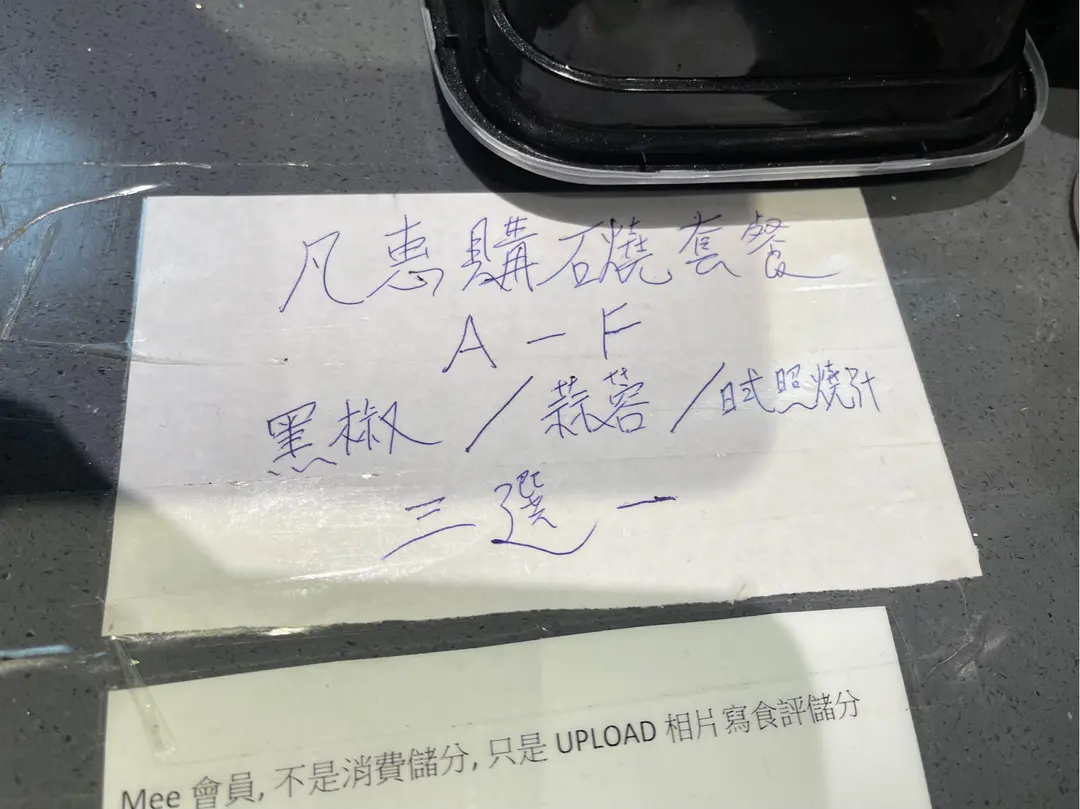 凡惠購石燒套餐
A - F
黑椒 / 蒜蓉 / 日式照燒汁
三選一
Mee 會員, 不是消費儲分, 只是 UPLOAD 相片寫食評儲分